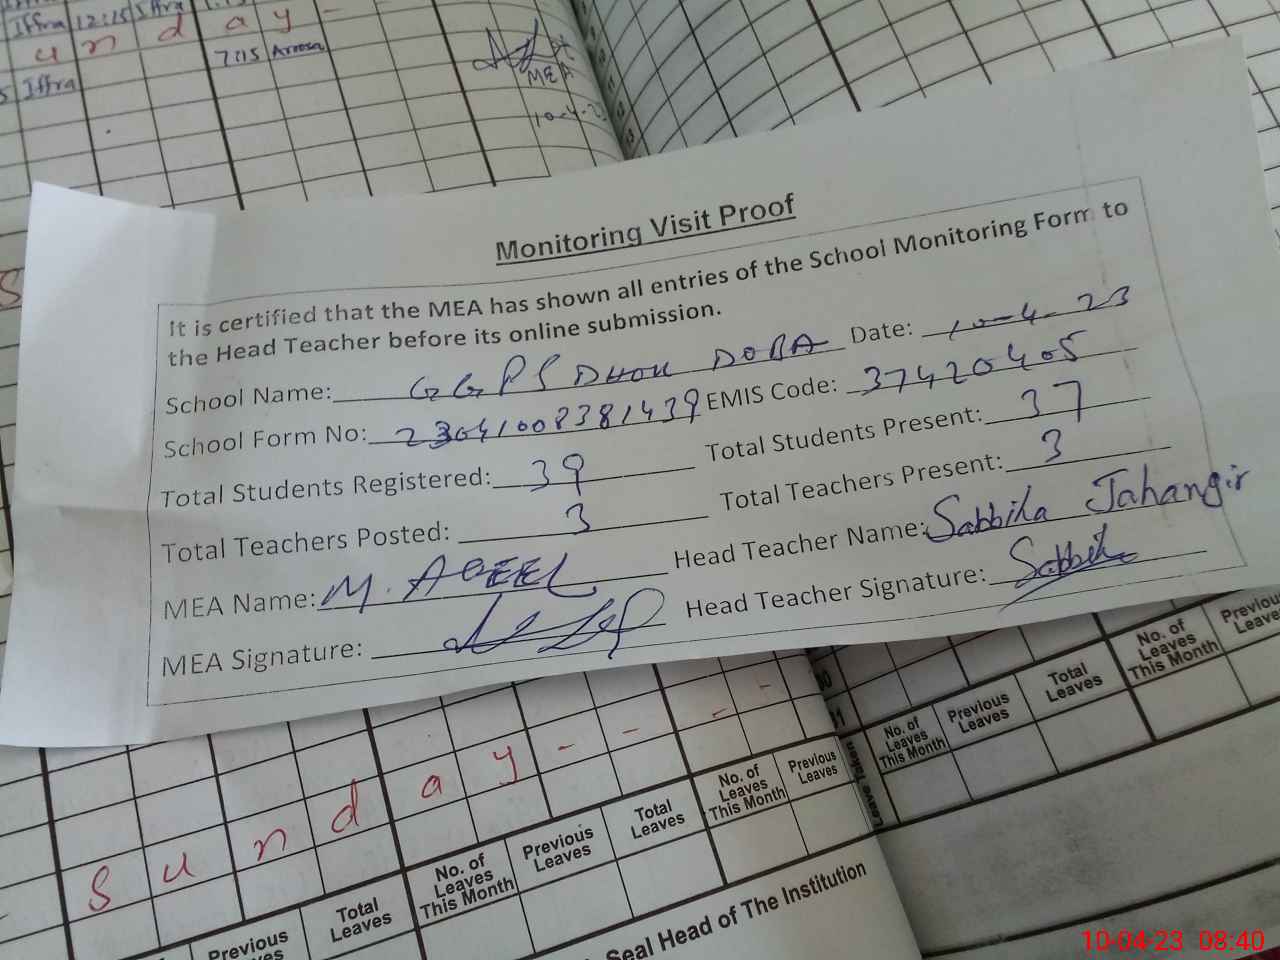 Iffra 12:15 Iffra
u n d a y -
7:15 Arrosa
Iffra
MEA
10-4-23
Monitoring Visit Proof
It is certified that the MEA has shown all entries of the School Monitoring Form to
the Head Teacher before its online submission.
School Name: GGPS DHOK DORA Date: 10-4-23
School Form No: 23041008381439 EMIS Code: 37420405
Total Students Registered: 39 Total Students Present: 37
Total Teachers Posted: 3 Total Teachers Present: 3
MEA Name: M. AQEEL Head Teacher Name: Sabbila Jahangir
MEA Signature: Head Teacher Signature: Sabbila
S u n d a y - - - -
No. of Leaves This Month Previous Leaves Total Leaves No. of Leaves This Month Previous Leaves
Leave Taken
Previous Leaves Total Leaves No. of Leaves This Month Previous Leaves Total Leaves No. of Leaves This Month Previous Leaves
Seal Head of The Institution
10-04-23 08:40